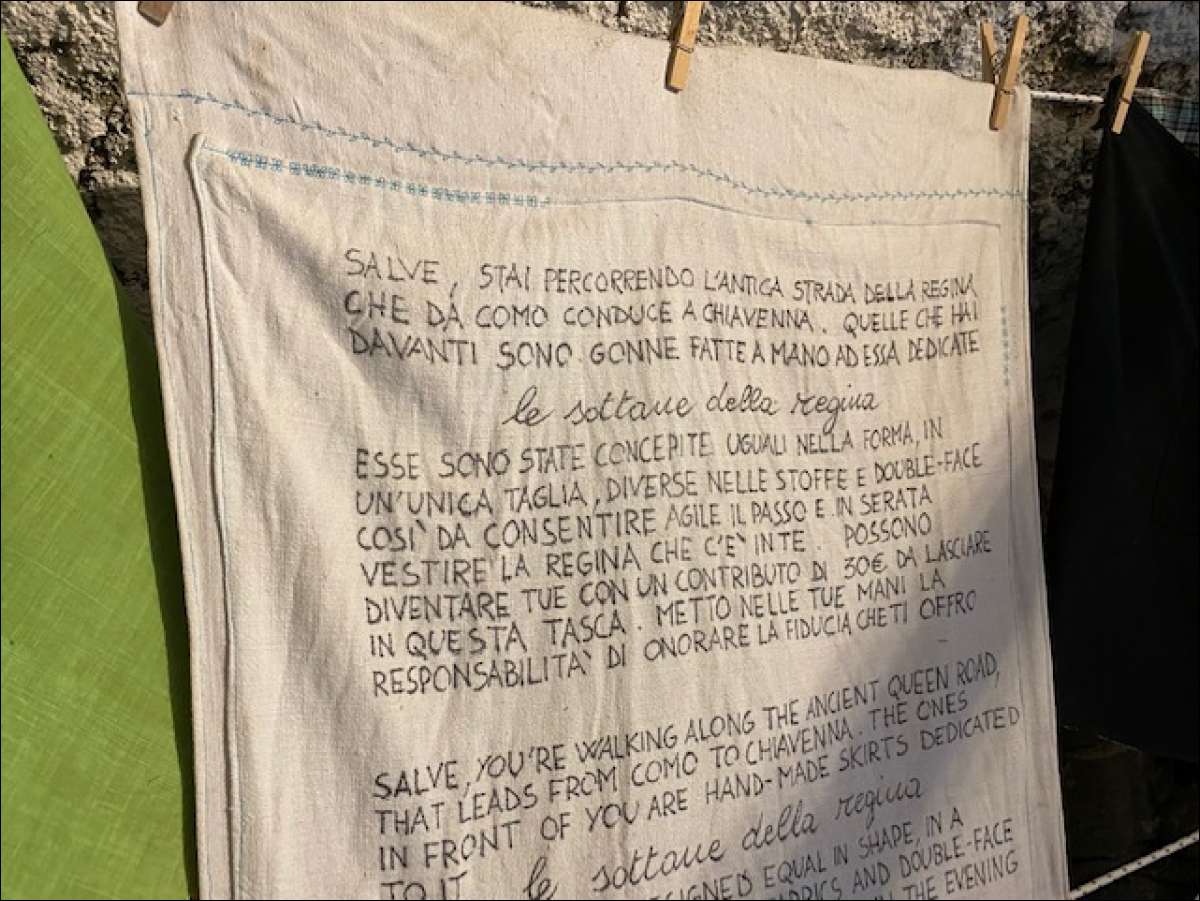 SALVE, STAI PERCORRENDO L'ANTICA STRADA DELLA REGINA
CHE DA COMO CONDUCE A CHIAVENNA. QUELLE CHE HAI
DAVANTI SONO GONNE FATTE A MANO AD ESSA DEDICATE
le sottane della regina
ESSE SONO STATE CONCEPITE UGUALI NELLA FORMA, IN
UN'UNICA TAGLIA, DIVERSE NELLE STOFFE E DOUBLE-FACE
COSÌ DA CONSENTIRE AGILE IL PASSO E IN SERATA
VESTIRE LA REGINA CHE C'È IN TE. POSSONO
DIVENTARE TUE CON UN CONTRIBUTO DI 30€ DA LASCIARE
IN QUESTA TASCA. METTO NELLE TUE MANI LA
RESPONSABILITÀ DI ONORARE LA FIDUCIA CHE TI OFFRO
SALVE, YOU'RE WALKING ALONG THE ANCIENT QUEEN ROAD,
THAT LEADS FROM COMO TO CHIAVENNA. THE ONES
IN FRONT OF YOU ARE HAND-MADE SKIRTS DEDICATED
TO IT le sottane della regina
EQUAL IN SHAPE, IN A
AND DOUBLE-FACE
THE EVENING